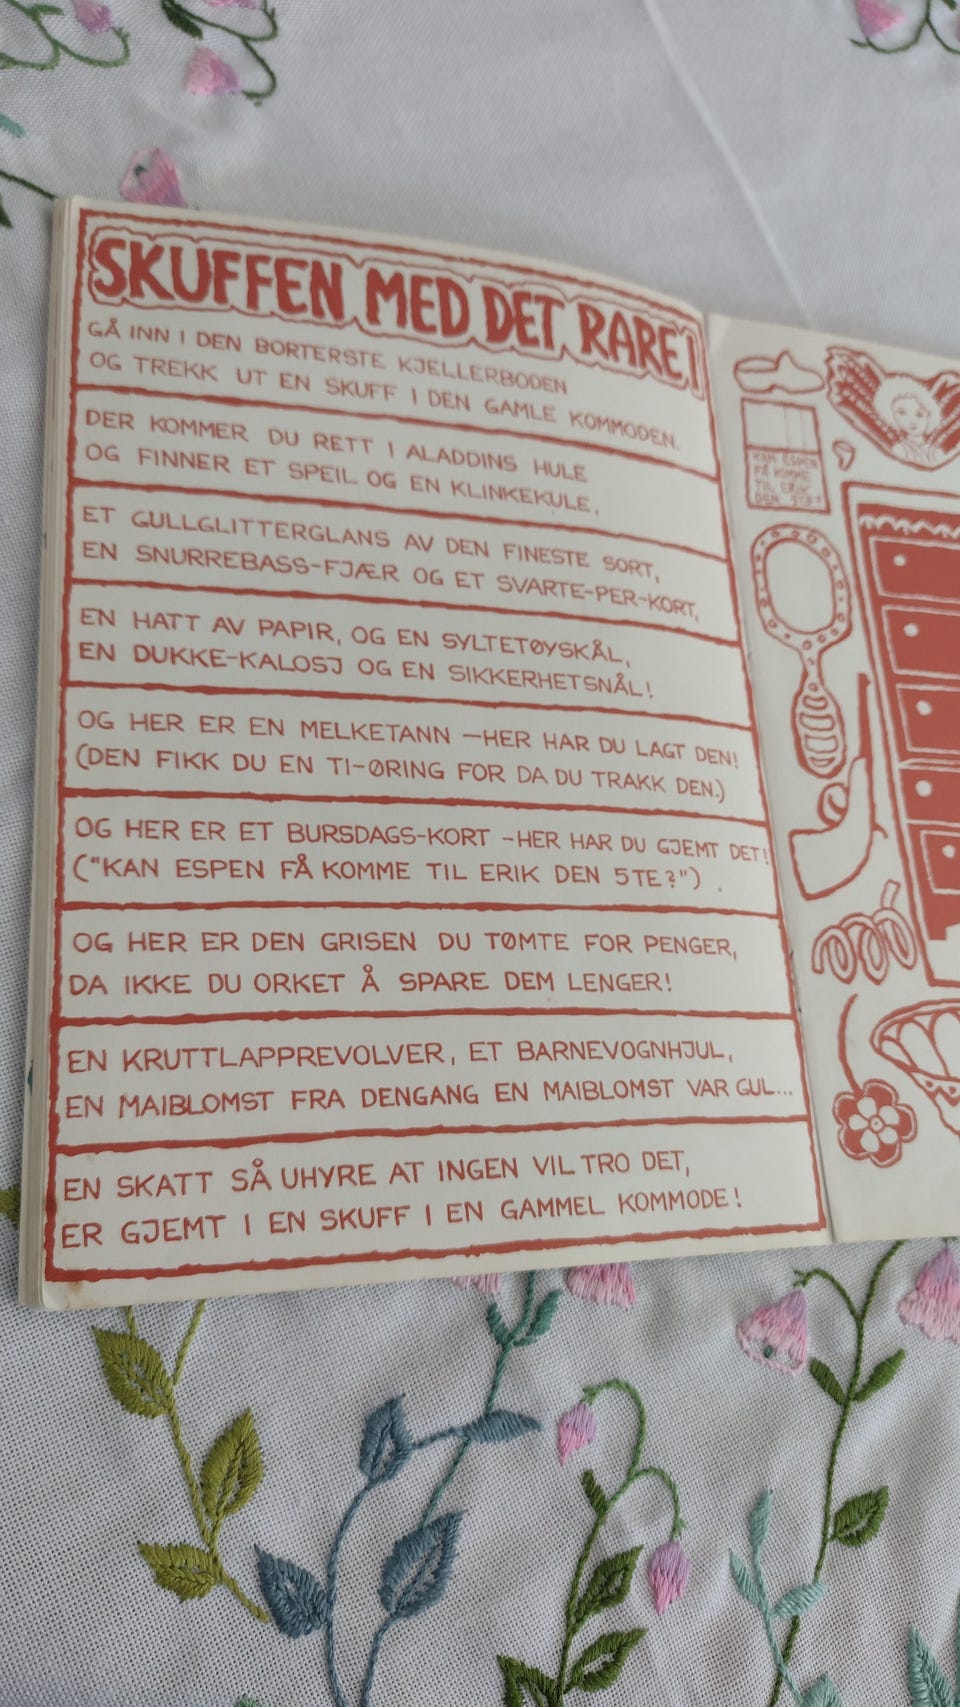 SKUFFEN MED DET RARE I
GÅ INN I DEN BORTERSTE KJELLERBODEN
OG TREKK UT EN SKUFF I DEN GAMLE KOMMODEN.
DER KOMMER DU RETT I ALADDINS HULE
OG FINNER ET SPEIL OG EN KLINKEKULE,
ET GULLGLITTERGLANS AV DEN FINESTE SORT,
EN SNURREBASS-FJÆR OG ET SVARTE-PER-KORT,
EN HATT AV PAPIR, OG EN SYLTETØYSKÅL,
EN DUKKE-KALOSJ OG EN SIKKERHETSNÅL!
OG HER ER EN MELKETANN —HER HAR DU LAGT DEN!
(DEN FIKK DU EN TI-ØRING FOR DA DU TRAKK DEN.)
OG HER ER ET BURSDAGS-KORT -HER HAR DU GJEMT DET!
("KAN ESPEN FÅ KOMME TIL ERIK DEN 5TE?").
OG HER ER DEN GRISEN DU TØMTE FOR PENGER,
DA IKKE DU ORKET Å SPARE DEM LENGER!
EN KRUTTLAPPREVOLVER, ET BARNEVOGNHJUL,
EN MAIBLOMST FRA DENGANG EN MAIBLOMST VAR GUL...
EN SKATT SÅ UHYRE AT INGEN VIL TRO DET,
ER GJEMT I EN SKUFF I EN GAMMEL KOMMODE!
KAN ESPEN
FÅ KOMME
TIL ERIK
DEN 5TE?